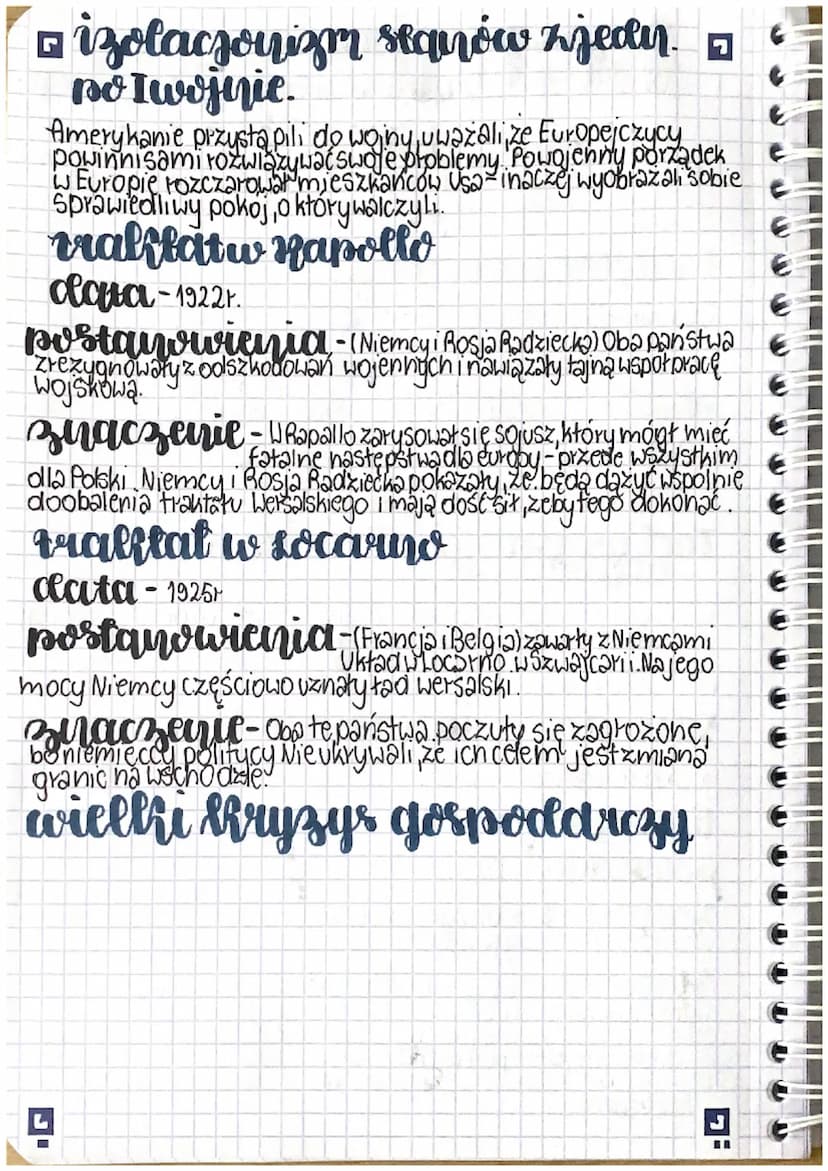 izolacjonizm stanów zjedn.
po I wojnie.
Amerykanie przystąpili do wojny, uważali, że Europejczycy
powinni sami rozwiązywać swoje problemy. Powojenny porządek
w Europie rozczarował mieszkańców USA - inaczej wyobrażali sobie
sprawiedliwy pokój, o który walczyli.
traktat w Rapollo
data - 1922r.
postanowienia - (Niemcy i Rosja Radziecka) Oba państwa
zrezygnowały z odszkodowań wojennych i nawiązały tajną współpracę
wojskową.
znaczenie - W Rapallo zarysował się sojusz, który mógł mieć
fatalne następstwa dla europy - przede wszystkim
dla Polski. Niemcy i Rosja Radziecka pokazały, że będą dążyć wspólnie
do obalenia traktatu Wersalskiego i mają dość sił, żeby tego dokonać.
traktat w Locarno
data - 1925r
postanowienia - (Francja i Belgia) zawarły z Niemcami
Układ w Locarno w Szwajcarii. Na jego
mocy Niemcy częściowo uznały ład wersalski.
znaczenie - Oba te państwa poczuły się zagrożone,
bo niemieccy politycy nie ukrywali, że ich celem jest zmiana
granic na wschodzie.
wielki kryzys gospodarczy